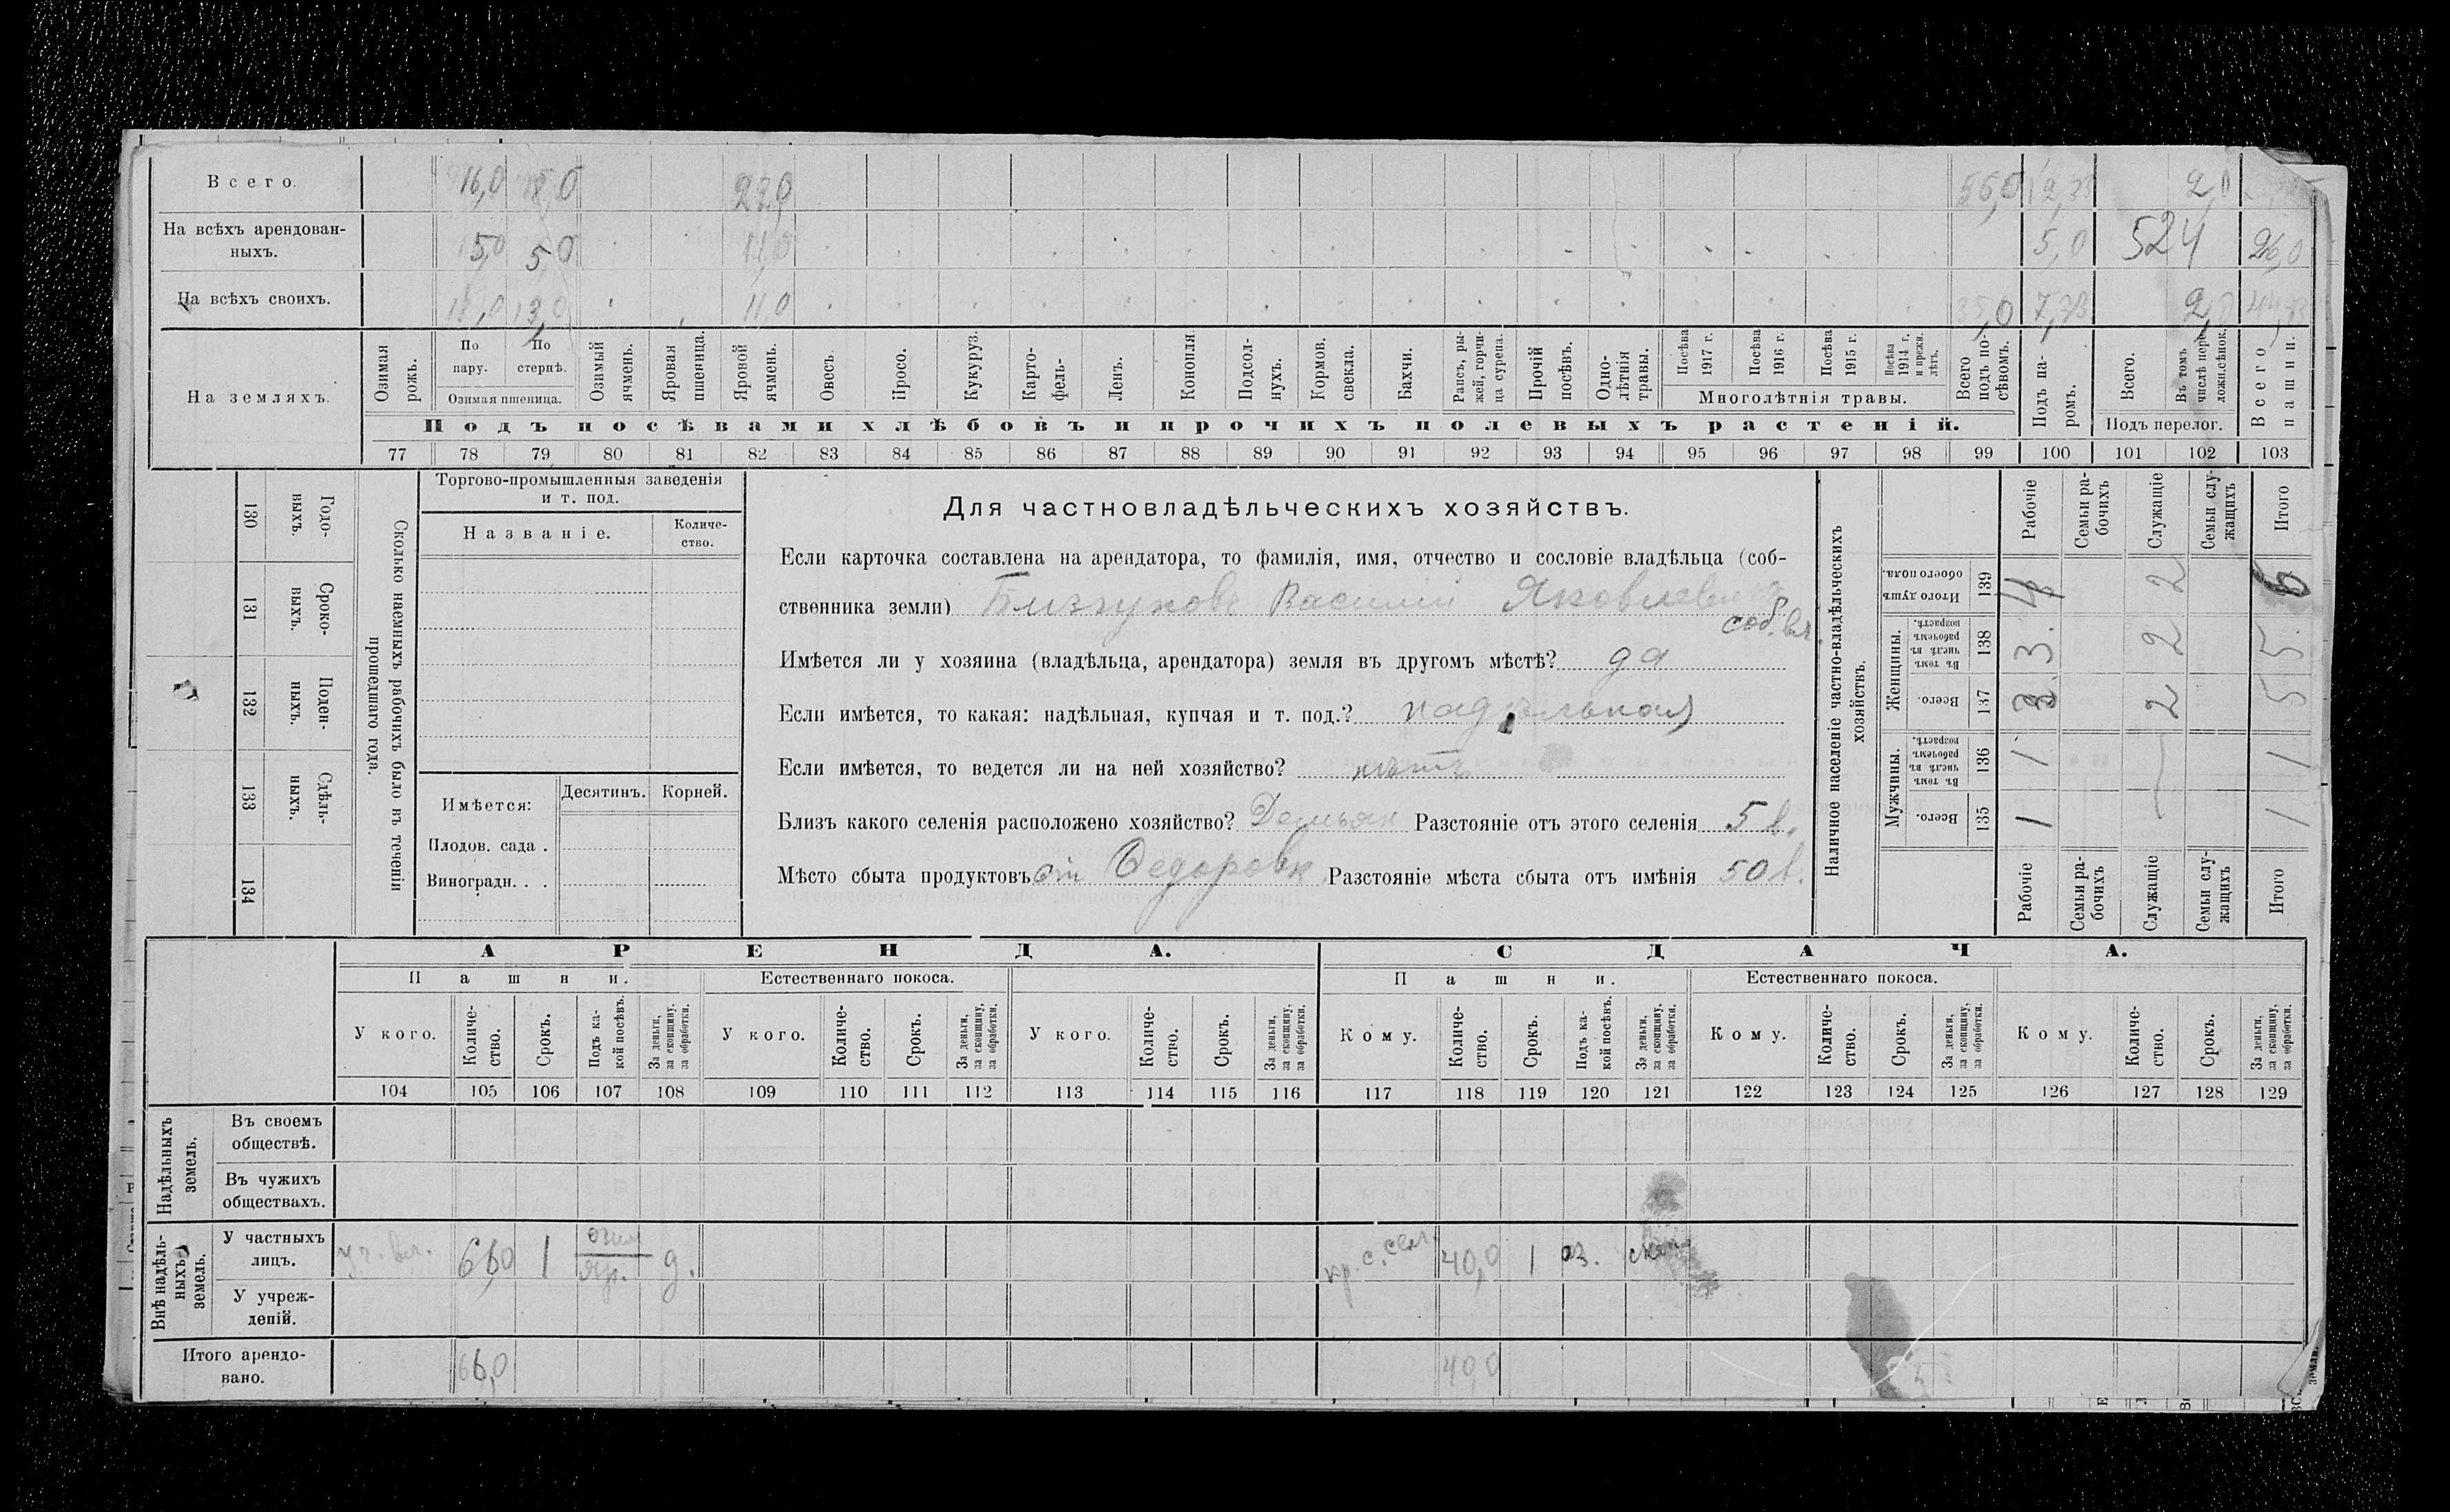 Всего. 16,0 18,0 22,0 2,0
На всѣхъ арендован-
ныхъ. 5,0 5,0 11,0 5,0 524 26,0
На всѣхъ своихъ. 13,0 11,0 7,33 2,0
На земляхъ.
Озимая рожь.
По пару.
По стернѣ.
Озимая пшеница.
Озимый ячмень.
Яровая пшеница.
Яровой ячмень.
Овесъ.
Просо.
Кукуруз.
Карто-
фель-
Ленъ.
Конопля
Подсол-
нухъ.
Кормов. свекла.
Бахчи.
Рапсъ, ры-
жей, горчи-
ца сурепа.
Прочій посѣвъ.
Одно-
лѣтнія травы.
Посѣва 1917 г.
Посѣва 1916 г.
Посѣва 1915 г.
Посѣва 1914 г. и прежн. лѣтъ.
Многолѣтнія травы.
Всего подъ по-
сѣвомъ.
Подъ па-
ромъ.
Всего.
Въ томъ числѣ пере-
ложн. сѣнок.
Подъ перелог.
Всего пашни.
Подъ посѣвами хлѣбовъ и прочихъ полевыхъ растеній.
77 78 79 80 81 82 83 84 85 86 87 88 89 90 91 92 93 94 95 96 97 98 99 100 101 102 103
130 Годо-
выхъ.
131 Сроко-
выхъ.
132 Поден-
ныхъ.
133 Сдѣль-
ныхъ.
134
Сколько наемныхъ рабочихъ было въ теченіи
прошедшаго года.
Торгово-промышленныя заведенія
и т. под.
Названіе. Количе-
ство.
Имѣется: Десятинъ. Корней.
Плодов. сада .
Виноградн. . .
Для частновладѣльческихъ хозяйствъ.
Если карточка составлена на арендатора, то фамилія, имя, отчество и сословіе владѣльца (соб-
ственника земли) Василий Яковлевич
соб. вл.
Имѣется ли у хозяина (владѣльца, арендатора) земля въ другомъ мѣстѣ? да
Если имѣется, то какая: надѣльная, купчая и т. под.? надѣльная
Если имѣется, то ведется ли на ней хозяйство? нѣтъ
Близъ какого селенія расположено хозяйство? Разстояніе отъ этого селенія 5 в.
Мѣсто сбыта продуктовъ Федоровк Разстояніе мѣста сбыта отъ имѣнія 50 в.
Наличное населеніе частно-владѣльческихъ
хозяйствъ.
Рабочіе
Семьи ра-
бочихъ
Служащіе
Семьи слу-
жащихъ
Итого
Итого душъ обоего пола. 139 4 2 6
Женщины.
Въ томъ числѣ въ рабочемъ возрастѣ. 138 3 2 5
Всего. 137 3 2 5
Мужчины.
Въ томъ числѣ въ рабочемъ возрастѣ. 136 1 1
Всего. 135 1 1
Рабочіе
Семьи ра-
бочихъ
Служащіе
Семьи слу-
жащихъ
Итого
АРЕНДА. СДАЧА.
Пашни. Естественнаго покоса. Пашни. Естественнаго покоса.
У кого. Количе-
ство. Срокъ. Подъ ка-
кой посѣвъ. За деньги, за скопщину, за обработки.
У кого. Количе-
ство. Срокъ. За деньги, за скопщину, за обработки.
У кого. Количе-
ство. Срокъ. За деньги, за скопщину, за обработки.
Кому. Количе-
ство. Срокъ. Подъ ка-
кой посѣвъ. За деньги, за скопщину, за обработки.
Кому. Количе-
ство. Срокъ. За деньги, за скопщину, за обработки.
Кому. Количе-
ство. Срокъ. За деньги, за скопщину, за обработки.
104 105 106 107 108 109 110 111 112 113 114 115 116 117 118 119 120 121 122 123 124 125 126 127 128 129
Надѣльныхъ земель.
Въ своемъ
обществѣ.
Въ чужихъ
обществахъ.
Внѣ надѣль-
ныхъ земель.
У частныхъ
лицъ. 1 озим яр. д. кр. с. 40,0 1 оз.
У учреж-
деній.
Итого арендо-
вано. 40,0